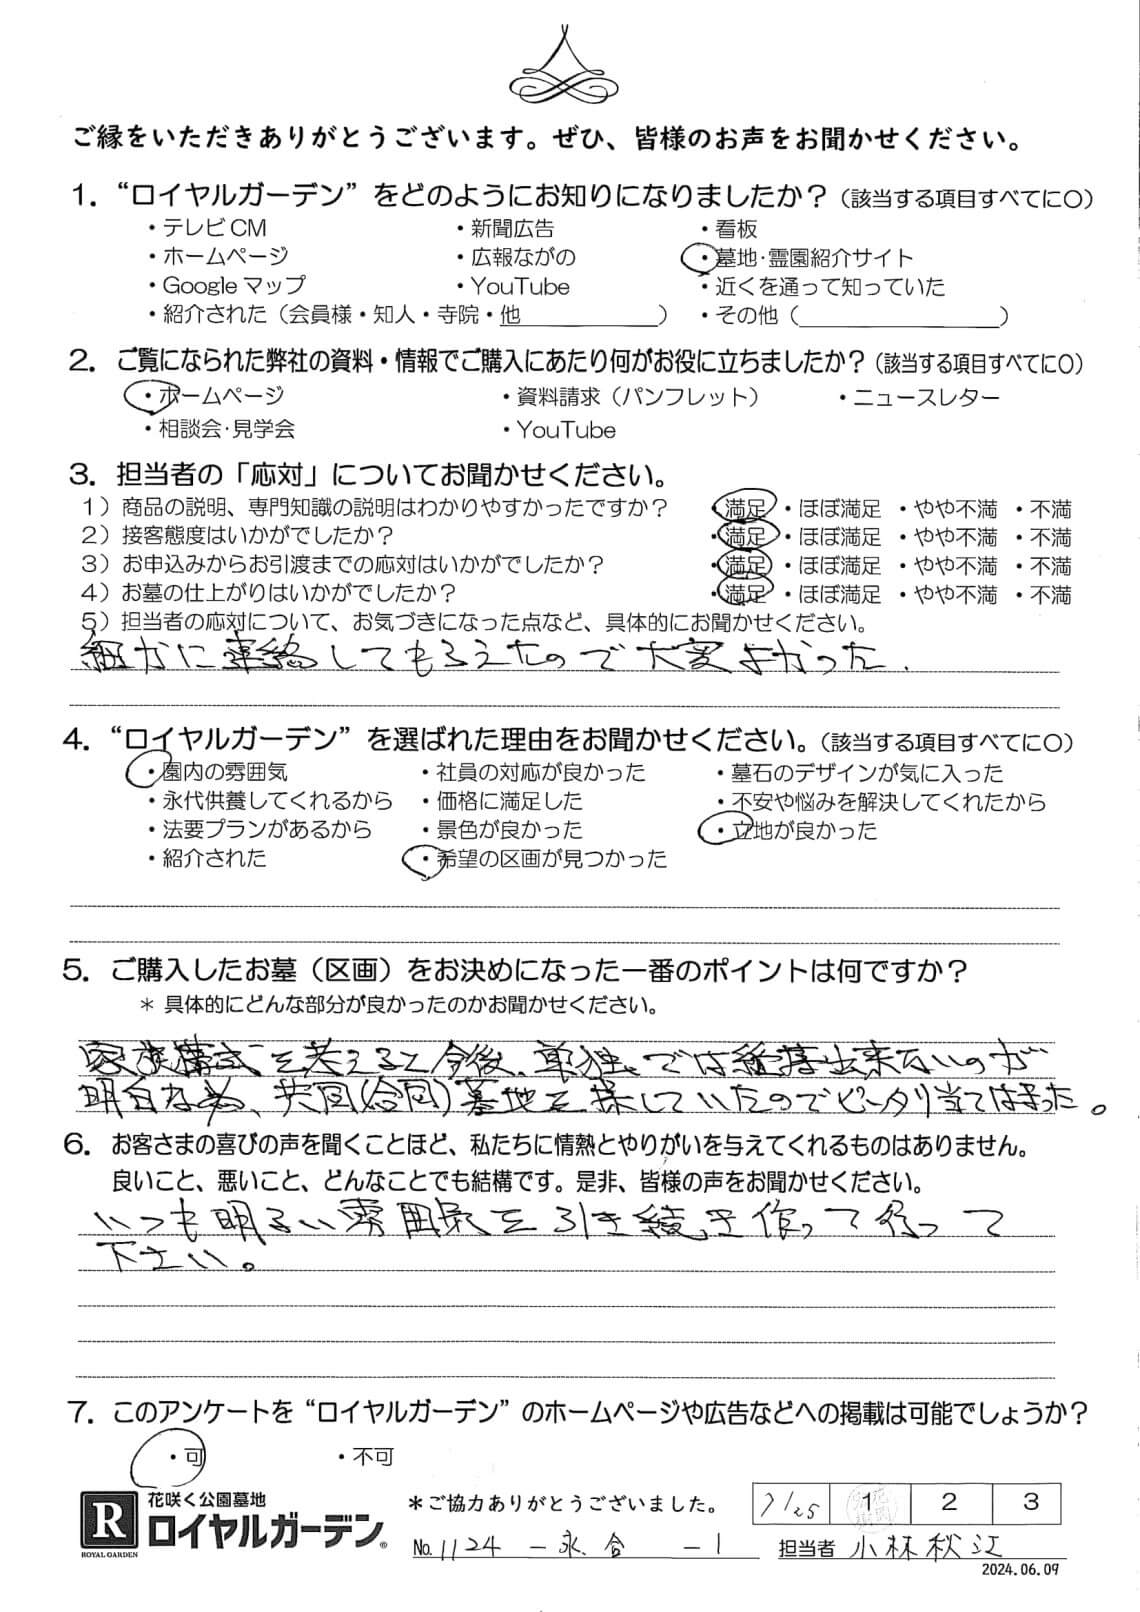 ご縁をいただきありがとうございます。ぜひ、皆様のお声をお聞かせください。
1. “ロイヤルガーデン” をどのようにお知りになりましたか？（該当する項目すべてに〇）
・テレビCM ・新聞広告 ・看板
・ホームページ ・広報ながの ・墓地・霊園紹介サイト
・Googleマップ ・YouTube ・近くを通って知っていた
・紹介された（会員様・知人・寺院・他 ） ・その他（ ）
2. ご覧になられた弊社の資料・情報でご購入にあたり何がお役に立ちましたか？（該当する項目すべてに〇）
・ホームページ ・資料請求（パンフレット） ・ニュースレター
・相談会・見学会 ・YouTube
3. 担当者の「応対」についてお聞かせください。
1）商品の説明、専門知識の説明はわかりやすかったですか？ ・満足 ・ほぼ満足 ・やや不満 ・不満
2）接客態度はいかがでしたか？ ・満足 ・ほぼ満足 ・やや不満 ・不満
3）お申込みからお引渡までの応対はいかがでしたか？ ・満足 ・ほぼ満足 ・やや不満 ・不満
4）お墓の仕上がりはいかがでしたか？ ・満足 ・ほぼ満足 ・やや不満 ・不満
5）担当者の応対について、お気づきになった点など、具体的にお聞かせください。
細かに連絡してもらえたので大変よかった.
4. “ロイヤルガーデン” を選ばれた理由をお聞かせください。（該当する項目すべてに〇）
・園内の雰囲気 ・社員の対応が良かった ・墓石のデザインが気に入った
・永代供養してくれるから ・価格に満足した ・不安や悩みを解決してくれたから
・法要プランがあるから ・景色が良かった ・立地が良かった
・紹介された ・希望の区画が見つかった
5. ご購入したお墓（区画）をお決めになった一番のポイントは何ですか？
＊ 具体的にどんな部分が良かったのかお聞かせください。
家族構成を考えると今後、単独では維持出来ないのが
明白な為、共同(合同)墓地を探していたのでピータリ当てはまった。
6. お客さまの喜びの声を聞くことほど、私たちに情熱とやりがいを与えてくれるものはありません。
良いこと、悪いこと、どんなことでも結構です。是非、皆様の声をお聞かせください。
いつも明るい雰囲気を引き続き作って行って
下さい。
7. このアンケートを “ロイヤルガーデン” のホームページや広告などへの掲載は可能でしょうか？
・可 ・不可
R ROYAL GARDEN 花咲く公園墓地 ロイヤルガーデン®
＊ご協力ありがとうございました。 7/25 1 2 3
No. 1124 - 永.合 - 1 担当者 小林秋江
2024.06.09